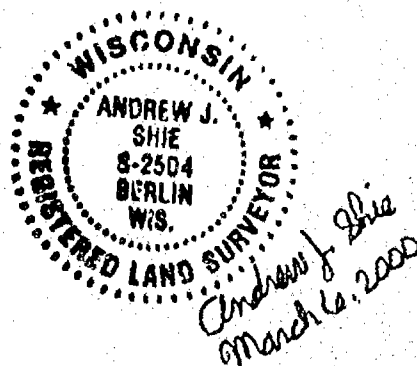 WISCONSIN
ANDREW J.
SHIE
S-2504
BERLIN
WIS.
REGISTERED LAND SURVEYOR
Andrew J. Shie
March 6, 2000